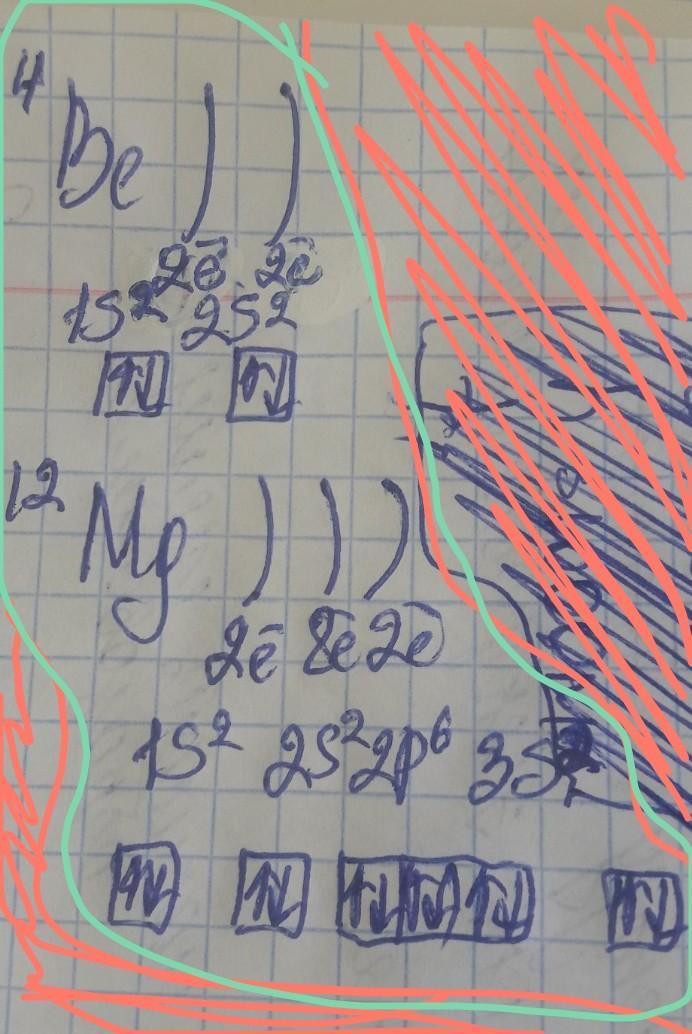 4 Be ) )
2ē 2ē
1S² 2S²
↑↓ ↑↓
12 Mg ) ) )
2ē 8ē 2ē
1S² 2S² 2p⁶ 3S²
↑↓ ↑↓ ↑↓ ↑↓ ↑↓ ↑↓